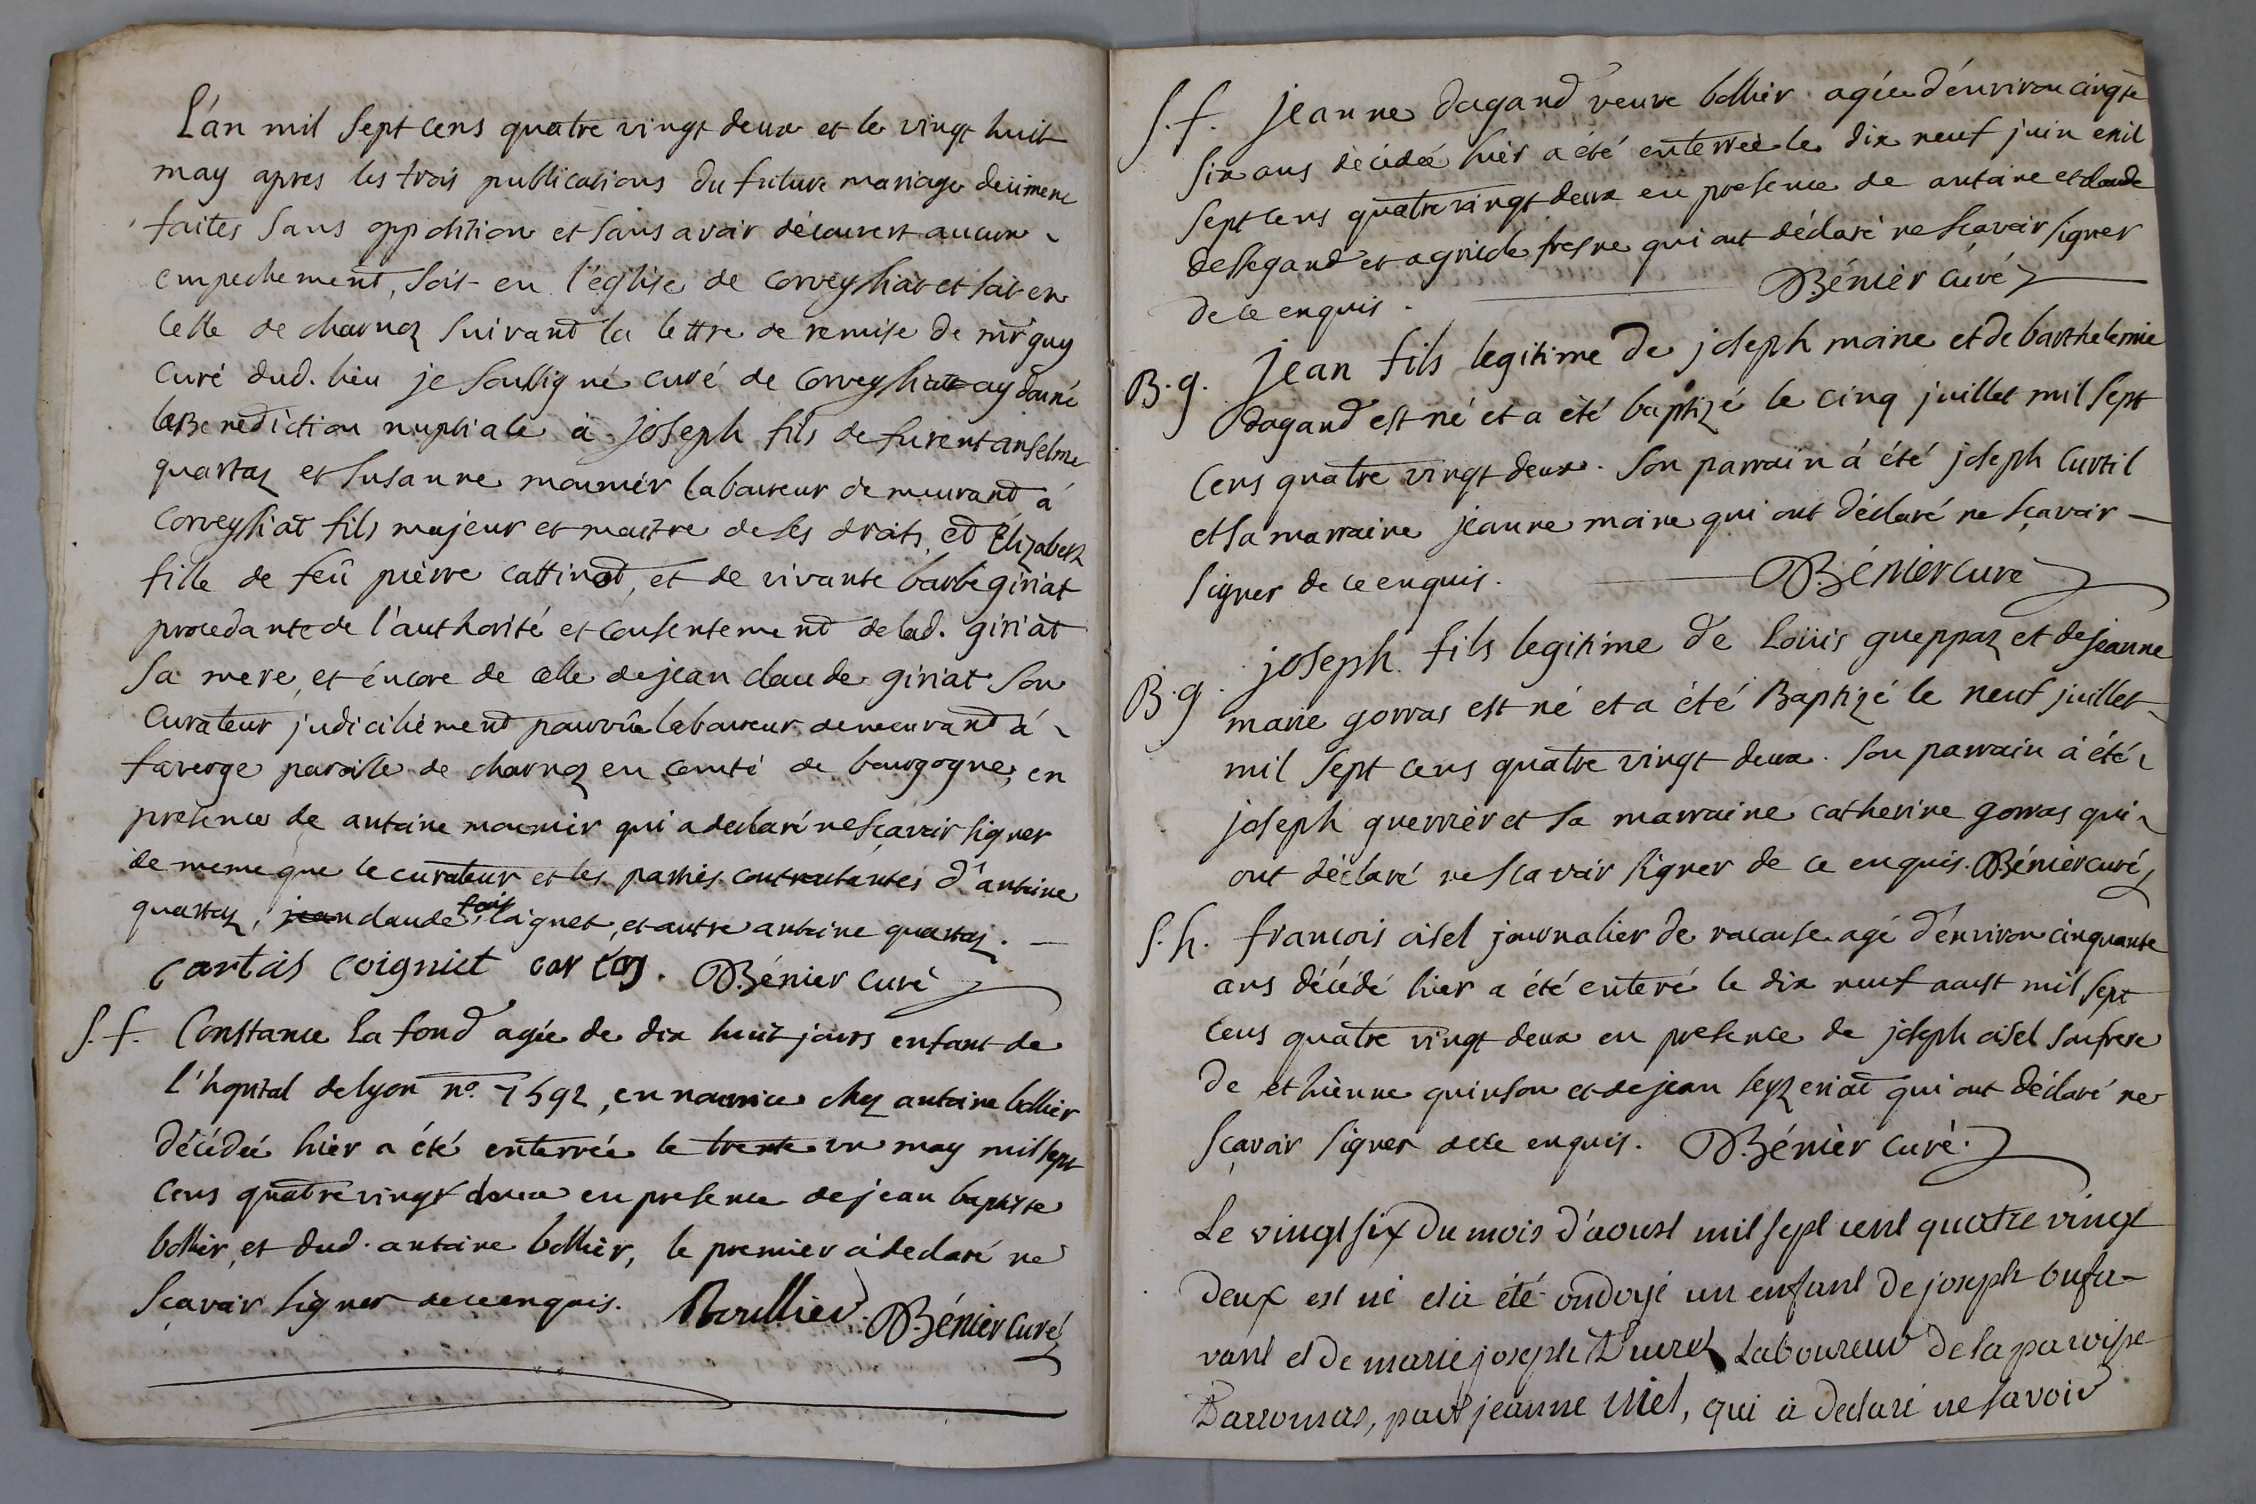 L'an mil sept cens quatre vingt deux et le vingt huit
may apres les trois publications du future mariage deüment
faites sans oppohition et sans avoir découvert aucun
empechement, soit en l'église de Corveyssiat et soit en
celle de charnoz suivant la lettre de remise de mr guy
curé dud. lieu je soussigné curé de Corveyssiat ay donné
la Benediction nuptiale à joseph fils de furent anselme
quartaz et susanne mounier laboureur demeurant à
Corveyssiat fils majeur et maitre de ses droits, et Elizabeth
fille de feû pièrre cattinot, et de vivante barbe giriat
procedante de l'authorité et consentement de lad. giriat
sa mere, et éncore de celle de jean claude giriat son
curateur judiciliément pourvû laboureur demeurant à
faverge paroisse de charnoz en comté de bourgogne, en
presence de antoine mounier qui a declaré ne sçavoir signer
de meme que le curateur et les parties contractantes d'antoine
quartaz, jean claude frois coignet, et autre antoine quartaz.
cartas coigniet cartas. Bénier curé
S. f. Constance La fond agée de dix huit jours enfant de
l'hopital de lyon no. 7592, en nourrice chez antoine bollier
décédée hièr a été enterrée le trente un may mil sept
cens quatre vingt deux en presence de jean baptiste
bollier, et dud. antoine bollièr, le premier a declaré ne
sçavoir signer de ce enquis. Boullier. Bénier curé
S. f. jeanne dagand veuve bollier agée d'énviron cinqte
six ans décédée hièr a été enterrée le dix neuf juin mil
sept cens quatre vingt deux en presence de antoine et claude
dessegand et agricole fresne qui ont déclaré ne sçavoir signer
de ce enquis. Bénièr curé
B. g. jean fils legitime de joseph moine et de barthelemie
dagand est né et a été baptizé le cinq juillet mil sept
cens quatre vingt deux. son parrain á été joseph curtil
et sa marraine jeanne moine qui ont déclaré ne sçavoir
signer de ce enquis. Bénièr curé
B. g. joseph fils legitime de Loüis gueppaz et de jeanne
marie gorras est né et a été Baptizé le neuf juillet
mil sept cens quatre vingt deux. son parrain à été
joseph guerrièr et sa marraine catherine gorras qui
ont déclaré ne scavoir signer de ce enquis. Bénièr curé
S. h. francois oisel journalier de racouse agé d'énviron cinquante
ans décédé hier a été enteré le dix neuf aoust mil sept
cens quatre vingt deux en presence de joseph oisel son frere
de ethiènne quinson et de jean seyzeriat qui ont déclaré ne
sçavoir signer de ce enquis. Bénièr curé.
Le vingt six du mois d'aoust mil sept cent quatre vingt
deux est né et à été ondoyé un enfant de joseph bufa-
vant et de marie joseph Duret Laboureur de la paroisse
Darromas, par jeanne Miel, qui à declaré ne savoir